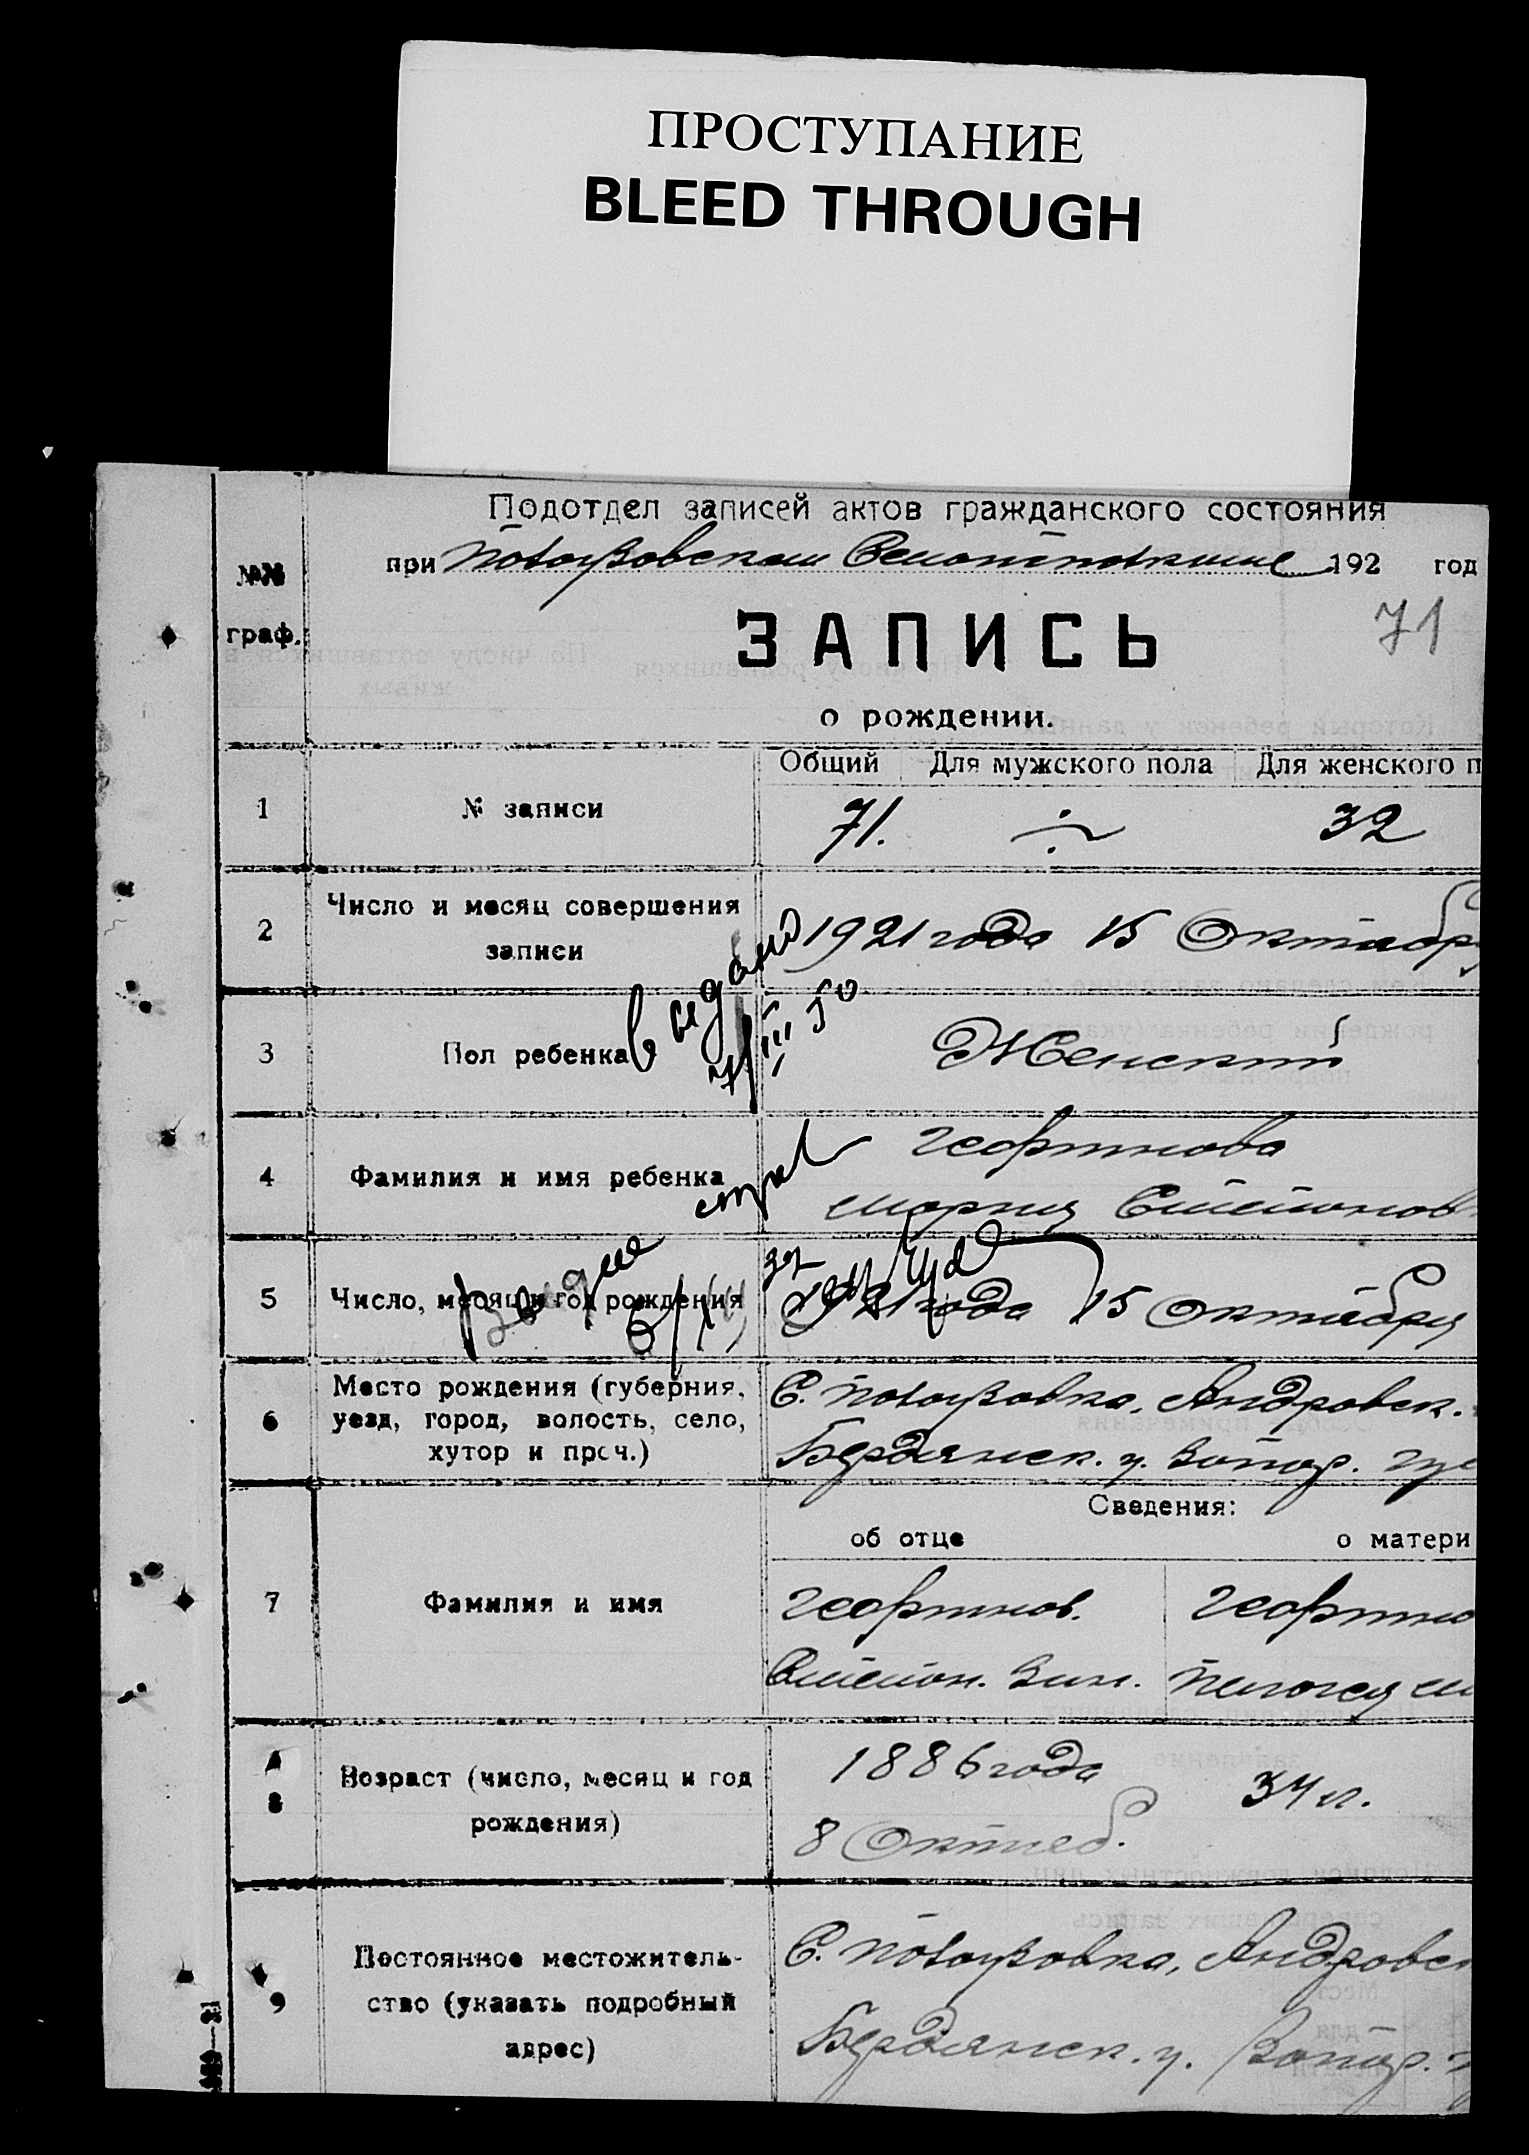 ПРОСТУПАНИЕ
BLEED THROUGH
Подотдел записей актов гражданского состояния
при 192 год
№№
граф.
71
ЗАПИСЬ
о рождении.
Общий Для мужского пола Для женского п
1 № записи 71. 32
2 Число и месяц совершения
записи
1921 года 15 Октабр
выдано
7/III 50
3 Пол ребенка Женский
4 Фамилия и имя ребенка
Георгинова
Мария Степанов
5 Число, месяц и год рождения 1921 года 15 Октября
6 Место рождения (губерния,
уезд, город, волость, село,
хутор и проч.)
С. Андровск.
Бердянск. у. Запор. гу
Сведения:
об отце о матери
7 Фамилия и имя
Георгинов. Георгино
Степан. Зин.
8 Возраст (число, месяц и год
рождения)
1886 года 34 л.
8 Октяб.
9 Постоянное местожитель-
ство (указать подробный
адрес)
С. Андровс
Бердянск. у. Запор.